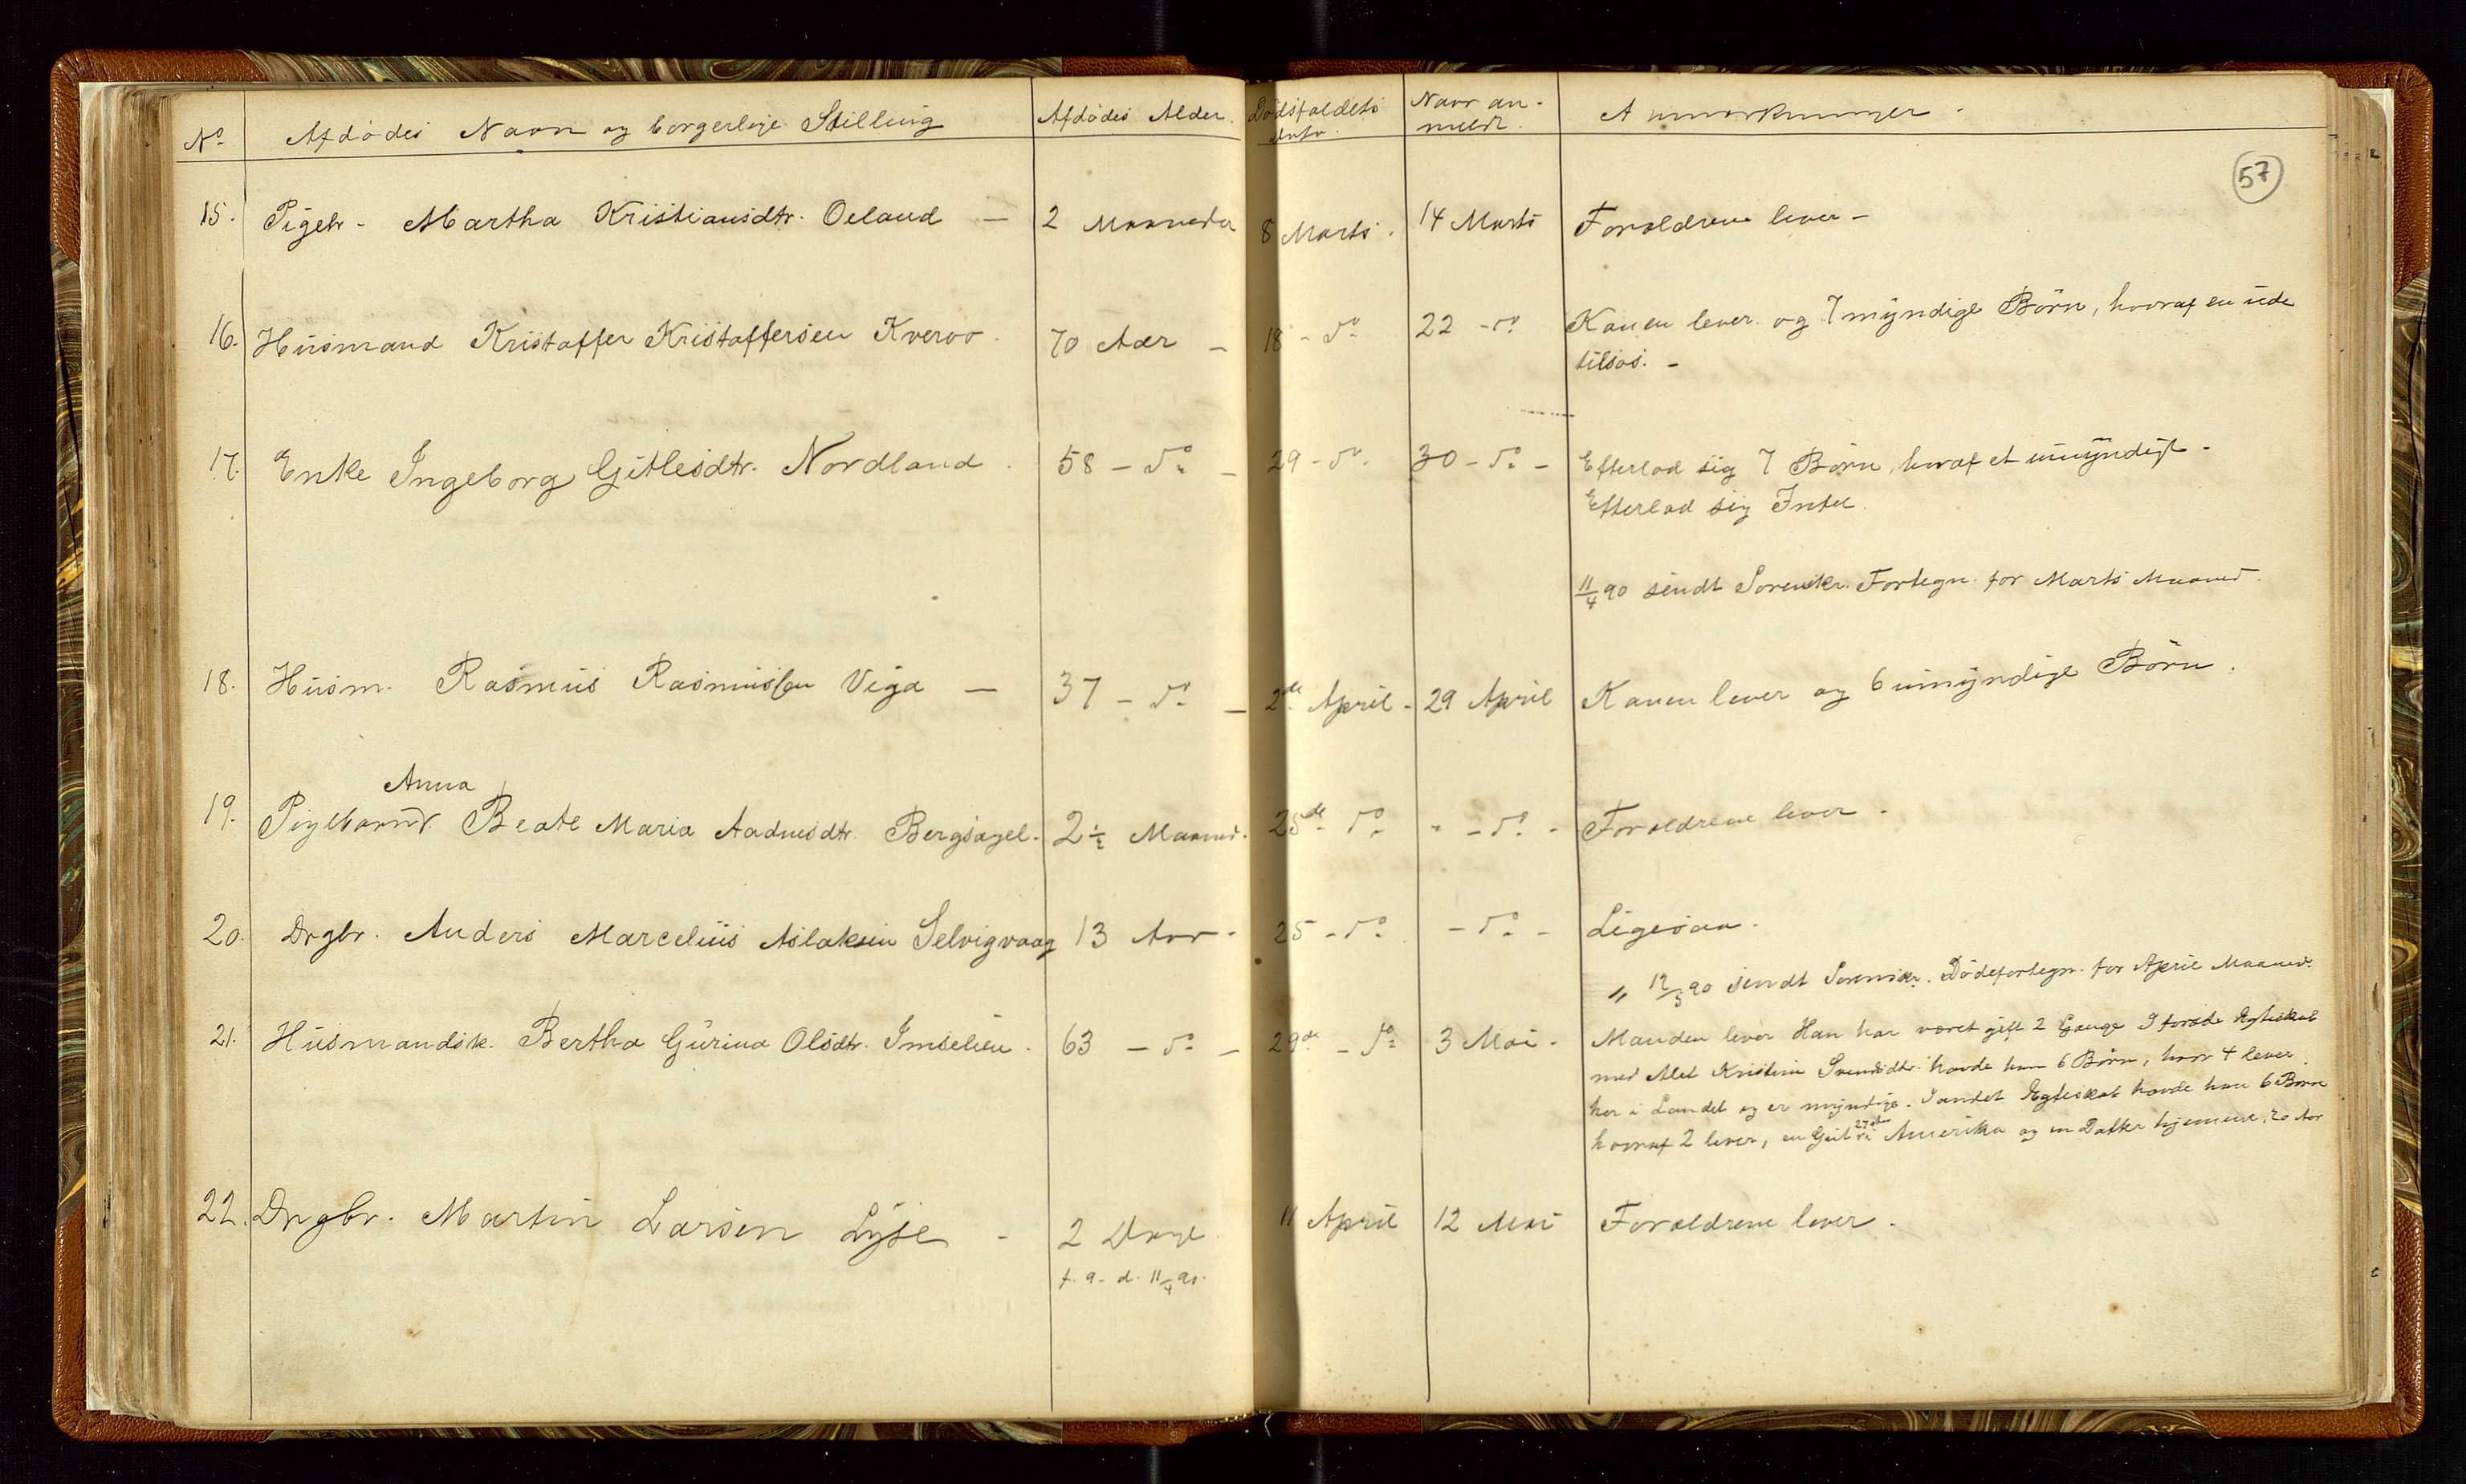 No Afdødes Navn og borgerlige Stilling Afdødes Alder. Dødsfaldets Dato. Naar anmeldt. Anmærkninger -
57
15. Pigebr - Martha Kristiansdtr. Øeland — 2 Maaneder 8 Marts. 14 Marts Forældrene lever -
16. Husmand Kristoffer Kristoffersen 70 Aar - 18 - do 22 - do Konen lever og 7 myndige Børn, hvoraf en ude
tilsøs. -
17. Enke Ingeborg Gitlesdtr. Nordland. 58 - do - 29 - do. 30 - do - Efterlod sig 7 Børn, hvoraf et umyndigt -
Efterlod sig Intet.
11/4 90 sendt Sorenskr. Fortegn. for Marts Maaned.
18. Husm. Rasmus Rasmussen Viga — 37 - do - 2de April - 29 April Konen lever og 6 umyndige Børn.
Anna
19. Pigebarnet Beate Maria Aadnesdtr. Bergsagel - 2½ Maaned. 25de do " - do - Forældrene lever -
20. Drgbr. Anders Marcelius Aslaksen Selvigvaag 13 Aar - 25 - do - do - Ligesaa.
" 12/5 90 sendt Sorenskr. Dødsfortegn. for April Maaned.
21. Husmandsk. Bertha Gurina Olsdtr. Imselien. 63 - do - 29de - do 3 Mai - Manden lever Han har været gift 2 Gange I første Egteskab
med Alet Kristine Svendsdtr. havde han 6 Børn, hvor 4 lever
her i Landet og er myndige. I andet Egteskab havde han 6 Børn
hvoraf 2 lever, en Gut i Amerika og en Datter hjemme, 20 Aar
22. Drgbr. Martin Larsen Lyse - 2 Dage. 11 April 12 Mai Forældrene lever.
f. 9 - d. 11/4 90.